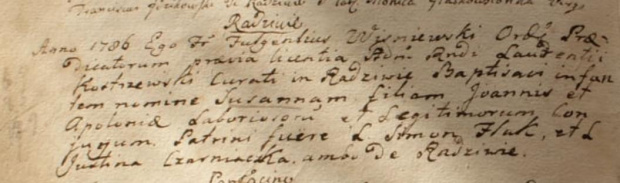 Franciscus de Radziwie
Radziwie
Anno 1786 Ego Fr Fulgentius Wisniewski Ord: Præ-
dicatorum prævia licentia Adm Rndi Laurentii
Kostrzewski Curati in Radziwie Baptisavi infan
tem nomine Susannam filiam Joannis et
Apoloniæ Laboriosoru et Legitimorum Con
jugum. Patrini fuere L Simon Fluk, et L
Justina Czarniacka, ambo de Radziwie.